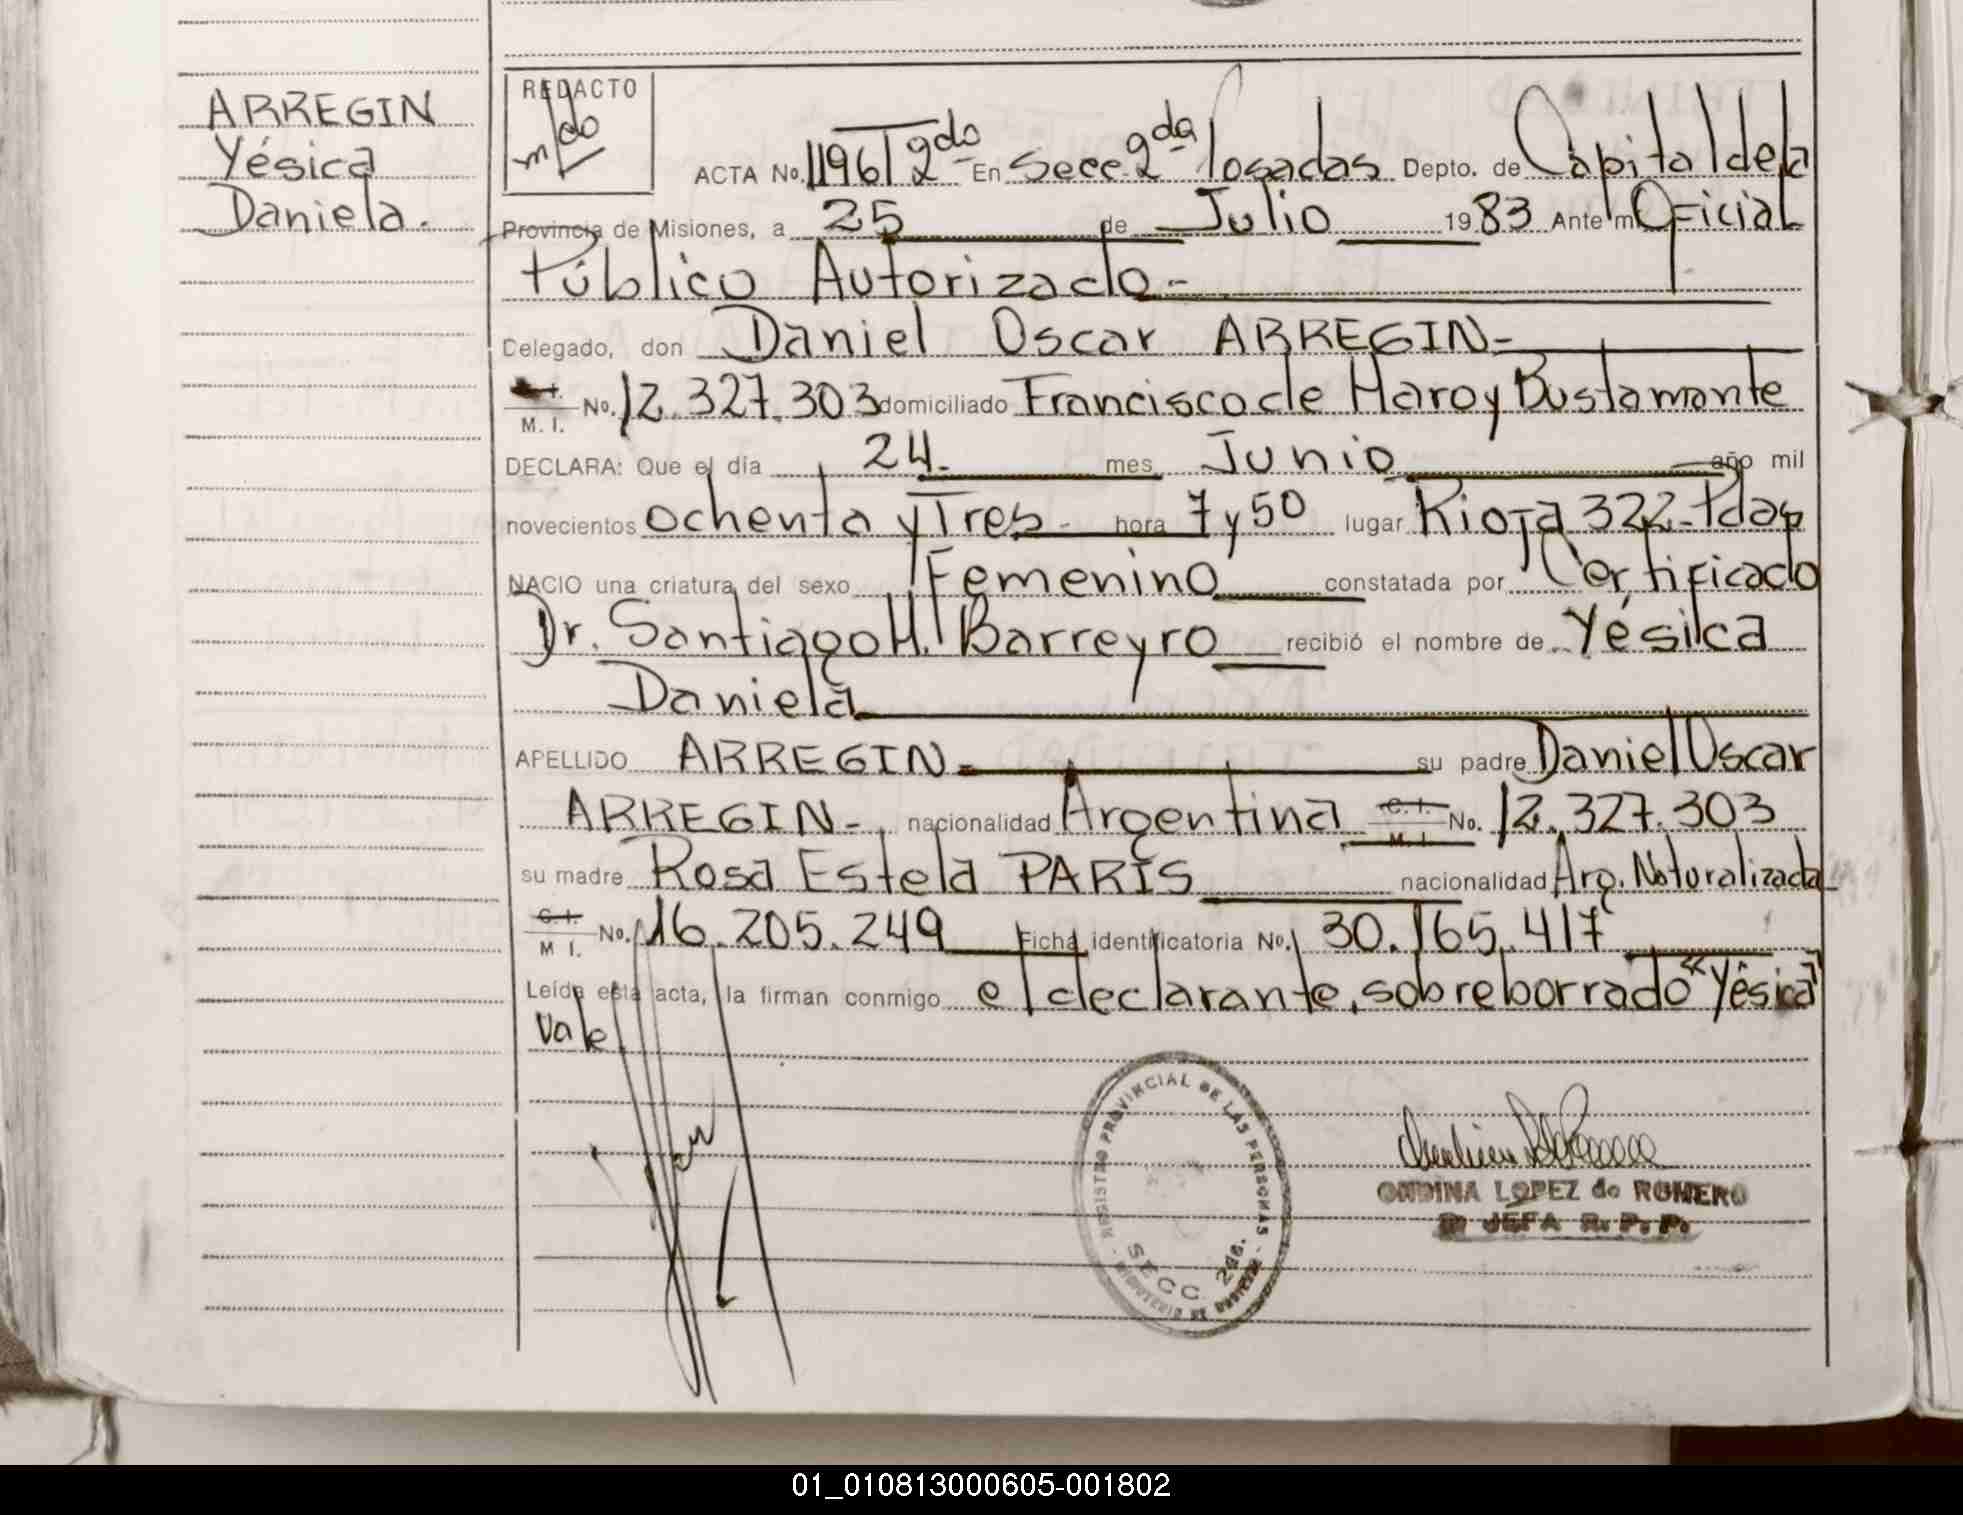 ARREGIN
Yésica
Daniela.
REDACTO
ACTA No. 1196 T 2do En Secc. 2da Posadas Depto. de Capital de la
Provincia de Misiones, a 25 de Julio 1983 Ante mi Oficial
Público Autorizado-
Delegado, don Daniel Oscar ARREGIN-
C. I.
M. I. No. 12.327.303 domiciliado Francisco de Haro y Bustamante
DECLARA: Que el día 24. mes Junio año mil
novecientos ochenta y Tres- hora 7 y 50 lugar Rioja 322-Pdas
NACIO una criatura del sexo Femenino constatada por Certificado
Dr. Santiago H. Barreyro recibió el nombre de Yésica
Daniela
APELLIDO ARREGIN- su padre Daniel Oscar
ARREGIN-, nacionalidad Argentina C. I. M. I. No. 12.327.303
su madre Rosa Estela PARIS nacionalidad Arg. Naturalizada
C. I.
M I. No. 16.205.249 Ficha identificatoria No. 30.165.417
Leída esta acta, la firman conmigo el declarante, sobreborrado "Yésica"
Vale
REGISTRO PROVINCIAL DE LAS PERSONAS
SECC. 2da.
ONDINA LOPEZ de ROMERO
JEFA R. P. P.
01_010813000605-001802